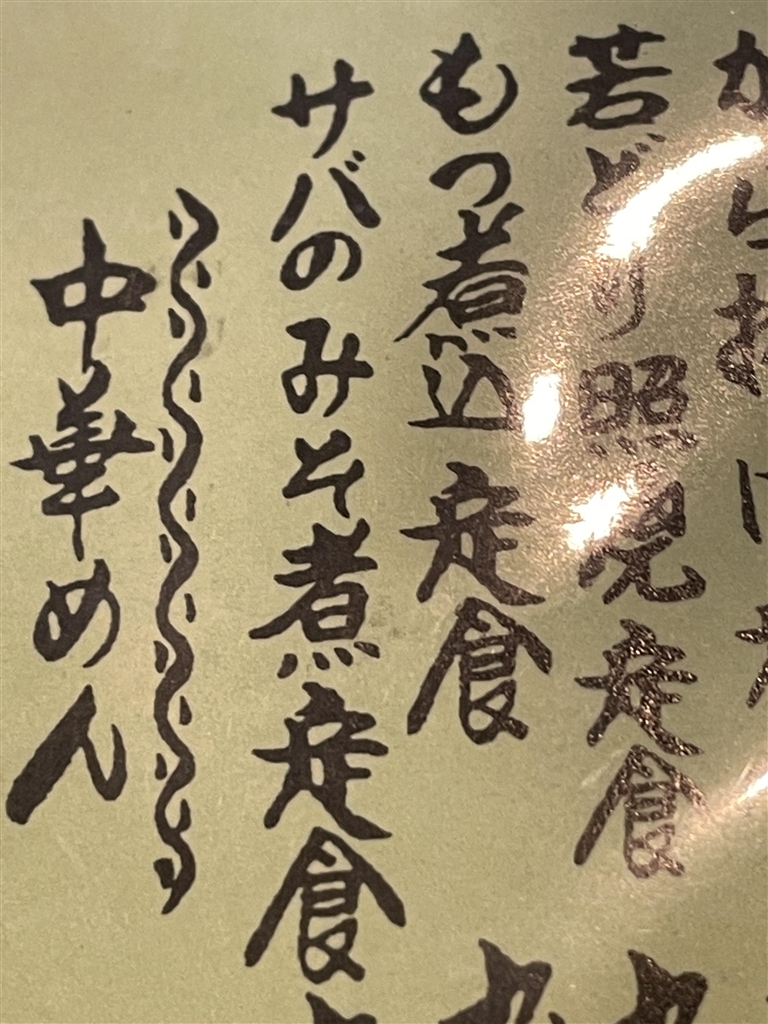 から揚げ
若どり照焼定食
もつ煮込定食
サバのみそ煮定食
中華めん